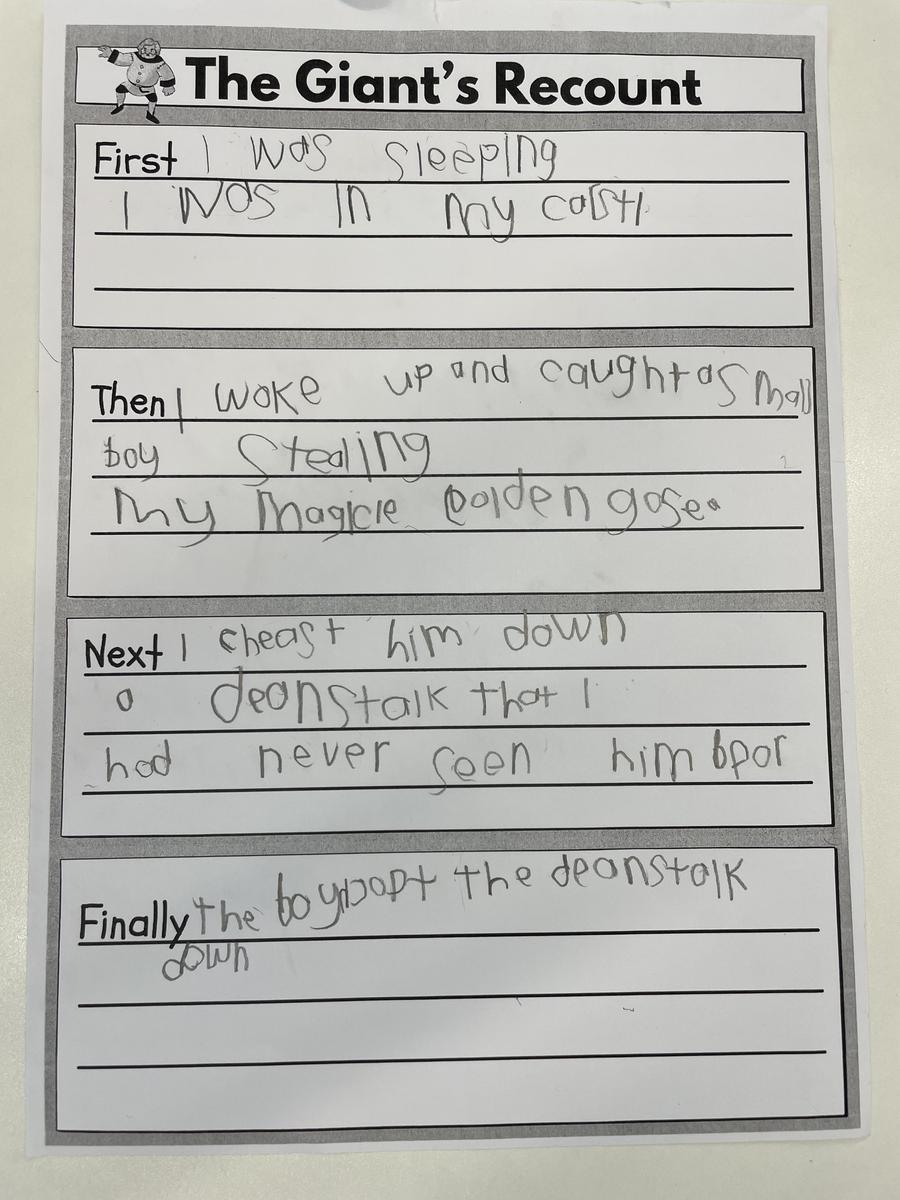 The Giant's Recount
First I was sleeping
I was in my castl
Then I woke up and caught a small
boy stealing
my magicle golden gose.
Next I cheast him down
a deanstalk that I
had never seen him bpor
Finally the boy the deanstalk
down